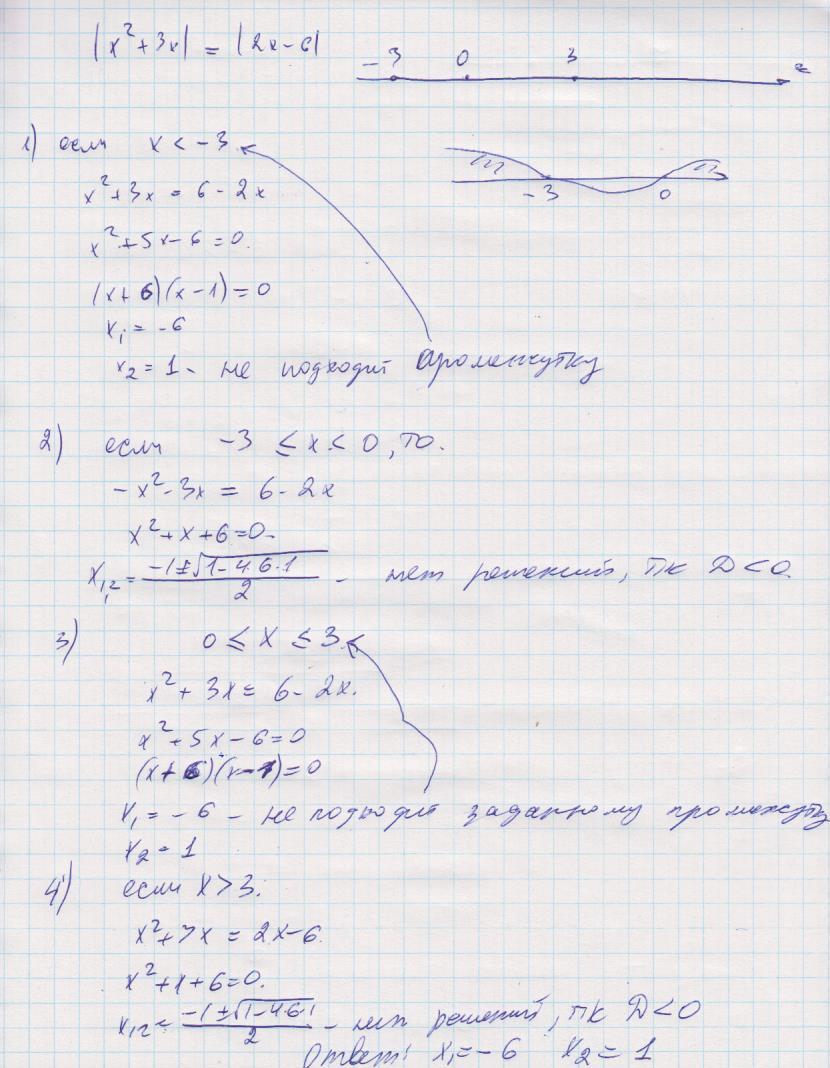 |x²+3x| = |2x-6|
-3 0 3 x
1) если x < -3
-3 0
x²+3x = 6-2x
x²+5x-6=0.
(x+6)(x-1)=0
x₁=-6
x₂=1 - не подходит промежутку
2) если -3 ≤ x < 0, то.
-x²-3x = 6-2x
x²+x+6=0
x₁,₂ = (-1±√(1-4·6·1))/2 - нет решений, тк D<0.
3) 0 ≤ x ≤ 3
x²+3x = 6-2x.
x²+5x-6=0
(x+6)(x-1)=0
x₁=-6 - не подходит заданному промежутку
x₂=1
4) если x>3.
x²+3x = 2x-6.
x²+x+6=0.
x₁,₂ = (-1±√(1-4·6·1))/2 - нет решений, тк D<0
Ответ: x₁=-6 x₂=1